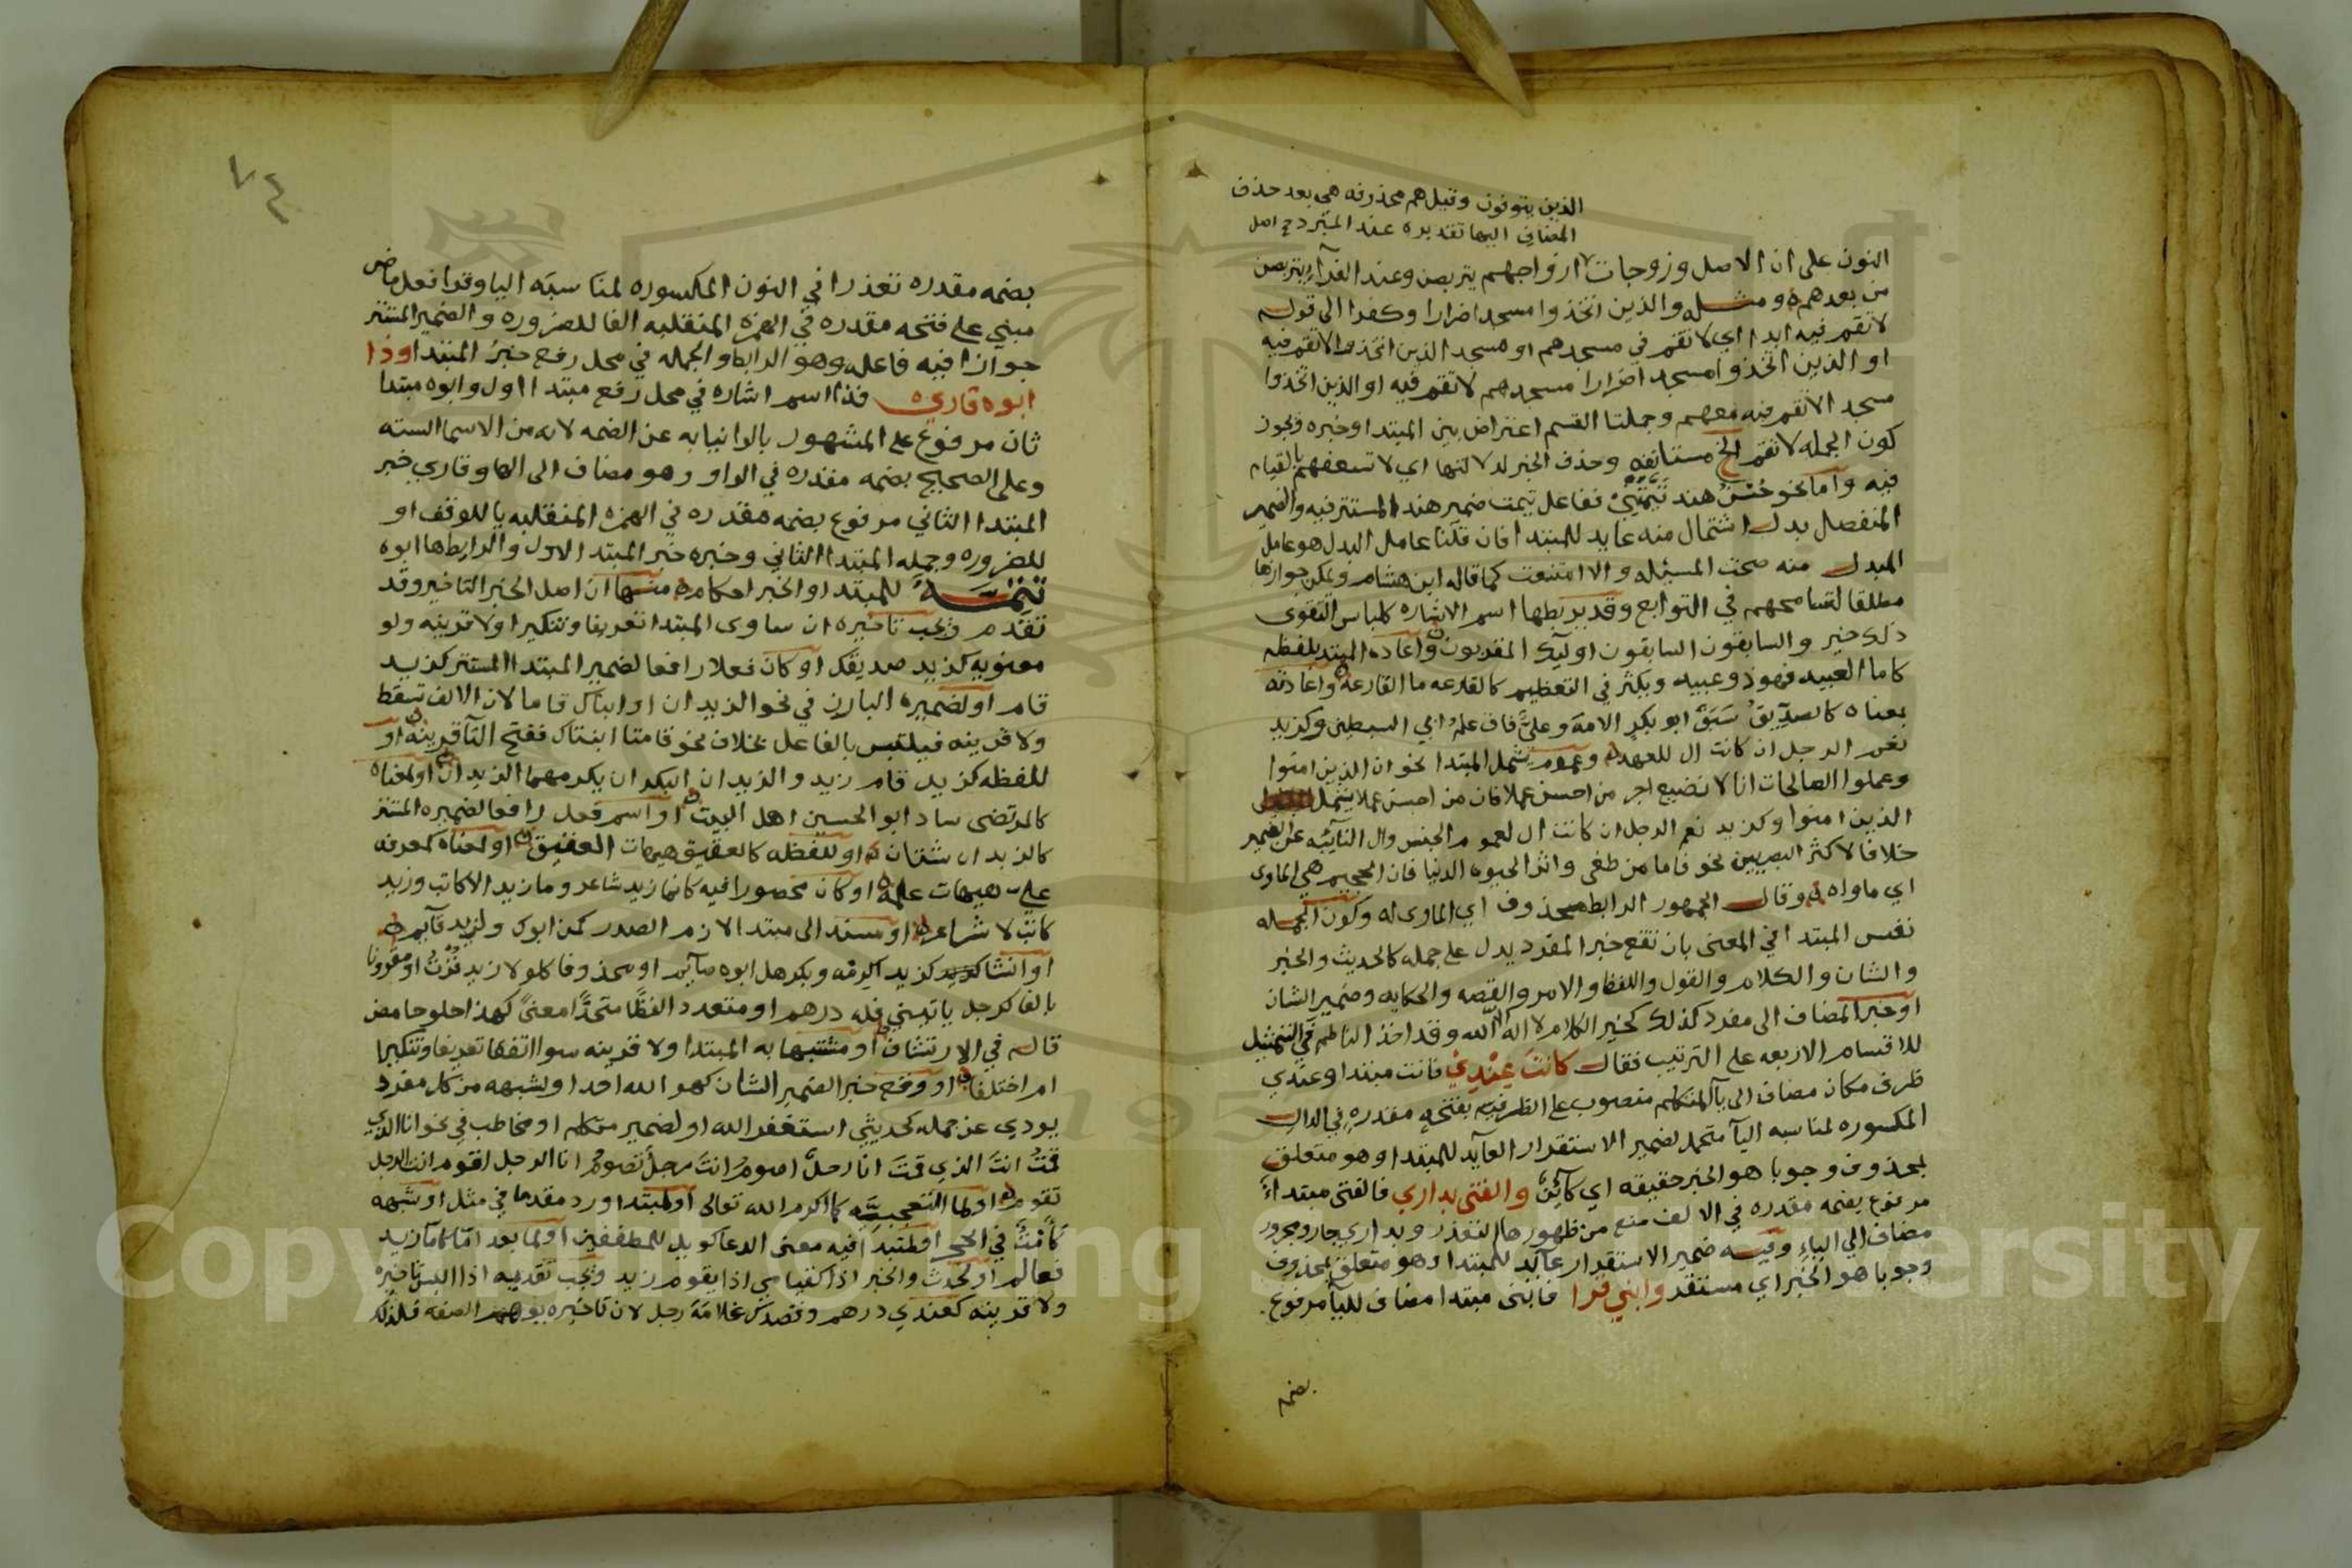 الذين يتوفون وقيل هم محذوفه هي بعد حذف
المضاف اليها تقديره عند المبرد
النون على ان الاصل وزوجات ازواجهم يتربصن وعند الفرآء يتربصن
من بعدهم ومثله والذين اتخذوا مسجدا ضرارا وكفرا الى قوله
لا تقم فيه ابدا اي لا تقم في مسجدهم او مسجد الذين اتخذوا لا تقم فيه
او الذين اتخذوا مسجدا ضرارا مسجدهم لا تقم فيه او الذين اتخذوا
مسجدا لا تقم فيه معهم وجملتا القسم اعتراض بين المبتدا وخبره ويجوز
كون الجمله لا تقم الخ مستانفه وحذف الخبر لدلالتها اي لا تسعفهم بالقيام
فيه واما نحو حسن هند تيمتني ففاعل تيمت ضمير هند المستتر فيه والضمير
المنفصل بدل اشتمال منه عايد للمبتدا فان قلنا عامل البدل هو عامل
المبدل منه صحت المسئله والا امتنعت كما قاله ابن هشام ويمكن جوازها
مطلقا لتسامحهم في التوابع وقد يربطها اسم الاشاره كلباس التقوى
ذلك خير والسابقون السابقون اوليك المقربون واعاده المبتدا بلفظه
كاما العبيد فهو ذو عبيد ويكثر في التعظيم كالقارعه ما القارعه واعادته
بمعناه كالصديق سبق ابو بكر الامة وعلي فاق علم ابي السبطين وكزيد
نعم الرجل ان كانت ال للعهد وعموم يشمل المبتدا نحو ان الذين امنوا
وعملوا الصالحات انا لا نضيع اجر من احسن عملا فان من احسن عملا يشمل
الذين امنوا وكزيد نعم الرجل ان كانت ال لعموم الجنس وال النائبه عن الضمير
خلافا لاكثر البصريين نحو فاما من طغى واثر الحيوه الدنيا فان الجحيم هي الماوى
اي ماواه وقال الجمهور الرابط محذوف اي الماوى له وكون الجمله
نفس المبتدا في المعنى بان تقع خبرا لمفرد يدل على جمله كالحديث والخبر
والشان والكلام والقول واللفظ والامر والقصه والحكايه وضمير الشان
او خبرا لمضاف الى مفرد كذلك كخير الكلام لا اله الا الله وقد اخذ الناظم في التمثيل
للاقسام الاربعه على الترتيب فقال كانت عندي فانت مبتدا وعندي
ظرف مكان مضاف الى يآ المتكلم منصوب على الظرفيه بفتحه مقدره في الدال
المكسوره لمناسبه اليآ متحمل لضمير الاستقرار العآيد للمبتدا وهو متعلق
بمحذوف وجوبا هو الخبر حقيقه اي كآئن والفتى بداري فالفتى مبتداء
مرفوع بضمه مقدره في الالف منع من ظهورها التعذر وبداري جار ومجرور
مضاف الى الياء وفيه ضمير الاستقرار عآئد للمبتدا وهو متعلق بمحذوف
وجوبا هو الخبر اي مستقر وابني قرا فابنى مبتدا مضاف لليآ مرفوع
بضمه
٧٤
بضمه مقدره تعذرا في النون المكسوره لمناسبه اليا وقرا فعل ماض
مبني على فتحه مقدره في الهمزه المنقلبه الفا للضروره والضمير المستتر
جوازا فيه فاعله وهو الرابط والجمله في محل رفع خبر المبتدا وذا
ابوه قاري فذا اسم اشاره في محل رفع مبتدا اول وابوه مبتدا
ثان مرفوع على المشهور بالواو نيابه عن الضمه لانه من الاسما السته
وعلى الصحيح بضمه مقدره في الواو وهو مضاف الى الها وقاري خبر
المبتدا الثاني مرفوع بضمه مقدره في الهمزه المنقلبه يا للوقف او
للضروره وجمله المبتدا الثاني وخبره خبر المبتدا الاول والرابط ها ابوه
تتمة للمبتدا والخبر احكام منها ان اصل الخبر التاخير وقد
تقدم ويجب تاخيره ان ساوى المبتدا تعريفا وتنكيرا ولا قرينه ولو
معنويه كزيد صديقك او كان فعلا رافعا لضمير المبتدا المستتر كزيد
قام او لضميره البارز في نحو الزيدان او ابناك قاما لان الالف تسقط
ولا قرينه فيلتبس بالفاعل بخلاف نحو قامتا ابنتاك ففتح التآ قرينه او
للفظه كزيد قام زيد والزيدان البكران يكرمهما الزيدان او لمعناه
كالمرتضى ساد ابو الحسين اهل البيت او اسم فعل رافعا لضميره المستتر
كالزيدان شتان او للفظه كالعقيق هيهات العقيق او لمعناه كمعرفه
علي هيهات علمه او كان محصورا فيه كانما زيد شاعر وما زيد الا كاتب وزيد
كاتب لا شاعر او مسند الى مبتدا لازم الصدر كمن ابوك ولزيد قآيم
او انشا كزيد اكرمه وبكر هل ابوه سآير او محذوفا كلولا زيد لزرت او مقرونا
بالفا كرجل ياتيني فله درهم او متعدد الفظا متحدا معنى كهذا حلو حامض
قاله في الارتشاف او مشتبها به المبتدا ولا قرينه سوا اتفقا تعريفا وتنكيرا
ام اختلفا او وقع خبرا لضمير الشان كهو الله احد او لشبهه من كل مفرد
يودي عن جمله كحديثي استغفر الله او لضمير متكلم او مخاطب في نحو انا الذي
قمت انت الذي قمت انا رجل اصوم انت رجل تصوم انا الرجل اقوم انت الرجل
تقوم او لما التعجبيه كما اكرم الله تعالى او لمبتدا ورد مقدما في مثل او شبهه
في الحج او لمبتدا فيه معنى الدعا كويل للمطففين او لما بعد اما كاما زيد
فعالم او لحدث والخبر اذا كقيامي اذا يقوم زيد ويجب تقديمه اذا البس تاخيره
ولا قرينه كعندي درهم وقصدك غلامه رجل لان تاخيره يوهم الصفه فلذلك
Copyright © King Saud University
1957